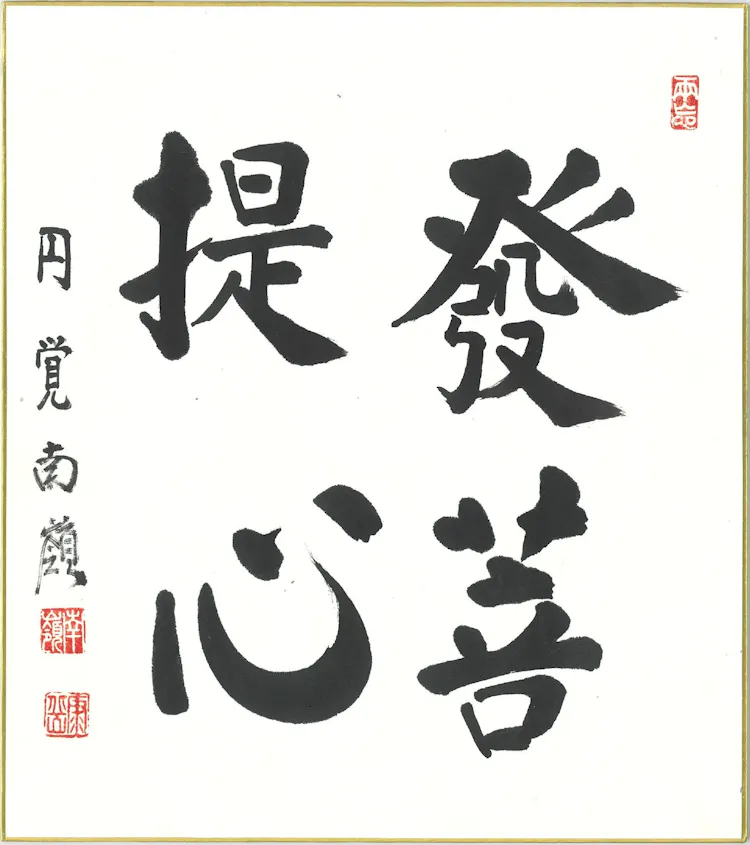 發菩
提心
円覚南嶺
南嶺